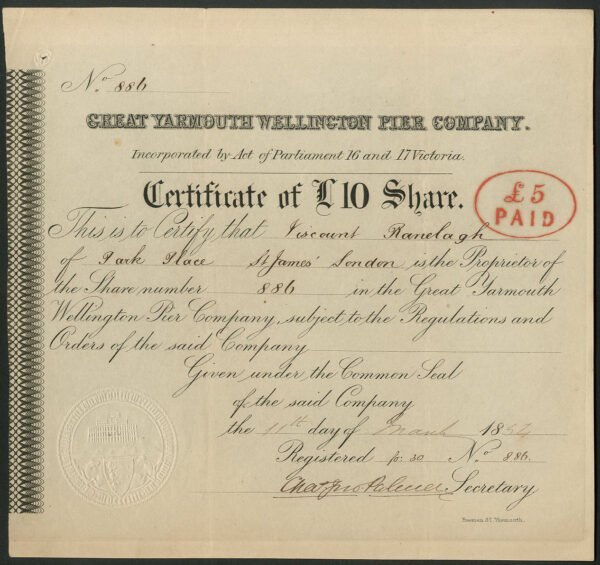 No. 886
GREAT YARMOUTH WELLINGTON PIER COMPANY.
Incorporated by Act of Parliament 16 and 17 Victoria.
Certificate of £10 Share.
£5
PAID
This is to Certify that Viscount Ranelagh
of Park Place St James' London is the Proprietor of
the Share number 886 in the Great Yarmouth
Wellington Pier Company, subject to the Regulations and
Orders of the said Company
Given under the Common Seal
of the said Company
the 11th day of March 1854
Registered fo: 30 No. 886.
Chas Jno Palmer Secretary